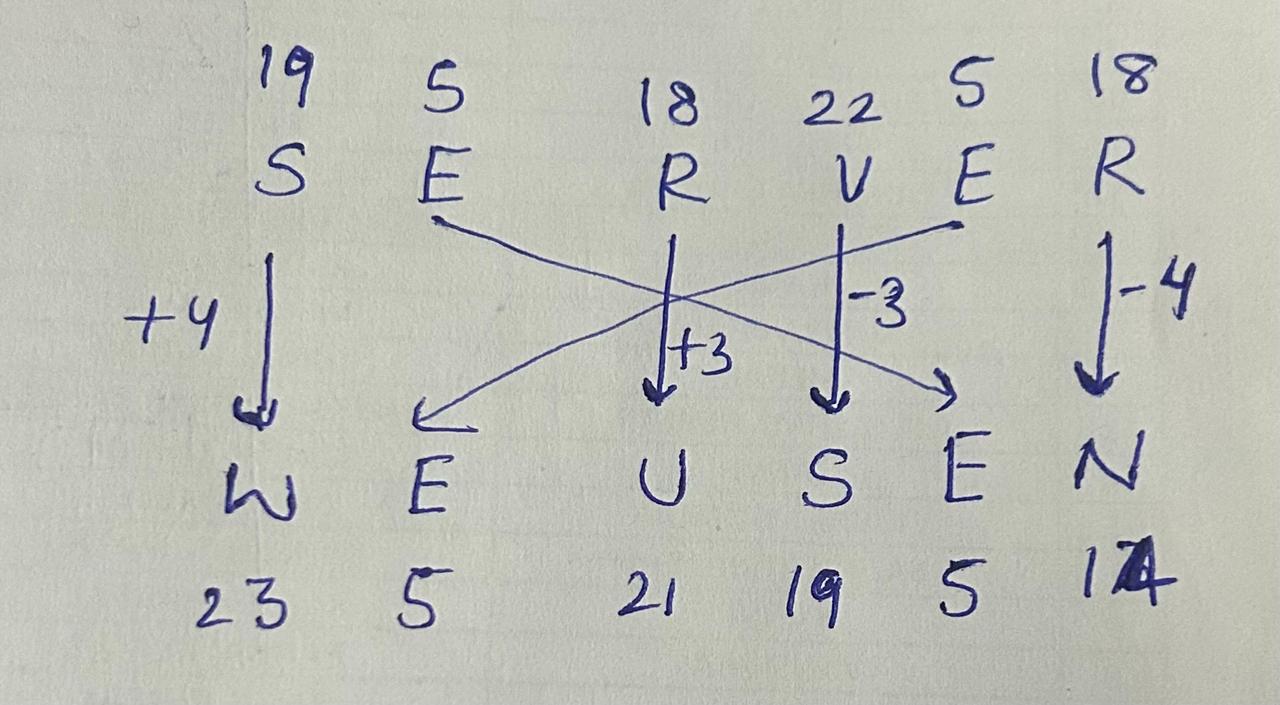 19 5 18 22 5 18
S E R V E R
+4 +3 -3 -4
W E U S E N
23 5 21 19 5 14